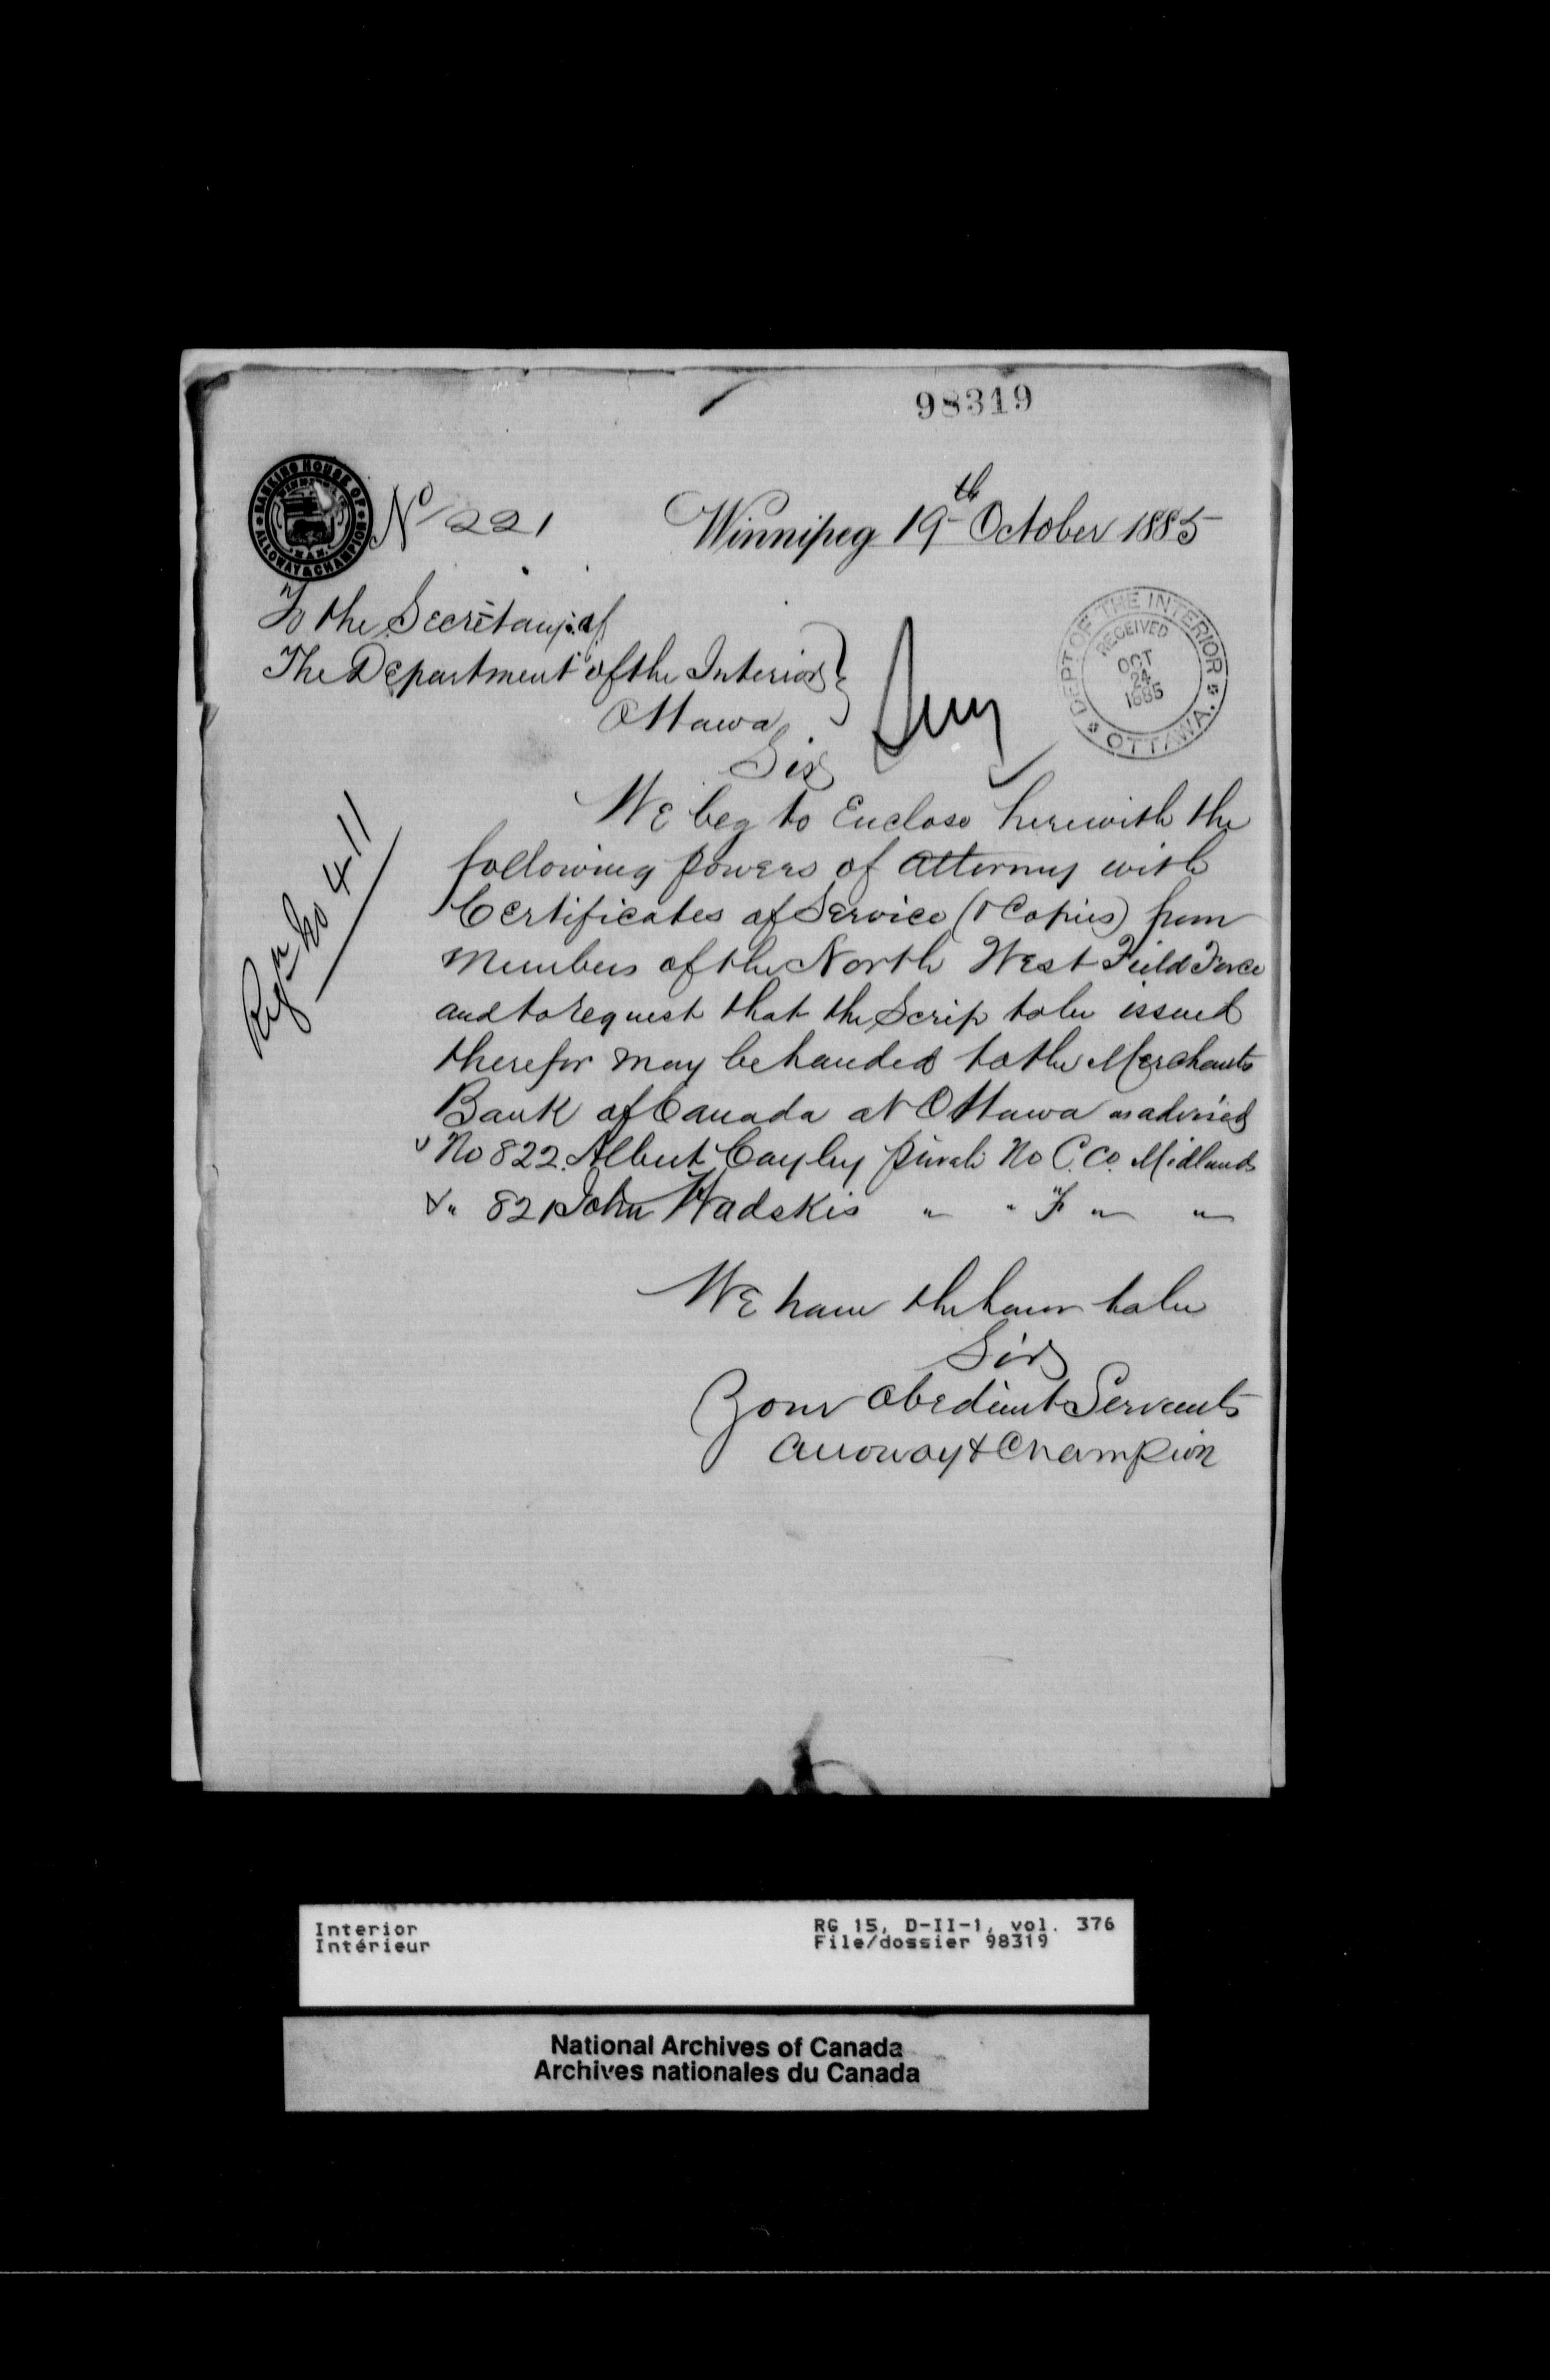 98319
BANKING HOUSE OF
ALLOWAY & CHAMPION
No 221
Winnipeg 19th October 1885
To the Secretary of
The Department of the Interior
Ottawa
DEPT OF THE INTERIOR
RECEIVED
OCT
24
1885
OTTAWA.
Sir
We beg to Enclose herewith the
following powers of attorney with
Certificates of Service (& Copies) from
Members of the North West Field Force
and to request that the Scrip to be issued
therefor may be handed to the Merchants
Bank of Canada at Ottawa as advised
No 822. Albert Cayley private No C. Co. Midlands
" 821 John Hadskis " " F " "
Regn No 411
We have the honor to be
Sir
Your obedient Servants
Alloway & Champion
Interior
Intérieur
RG 15, D-II-1, vol. 376
File/dossier 98319
National Archives of Canada
Archives nationales du Canada